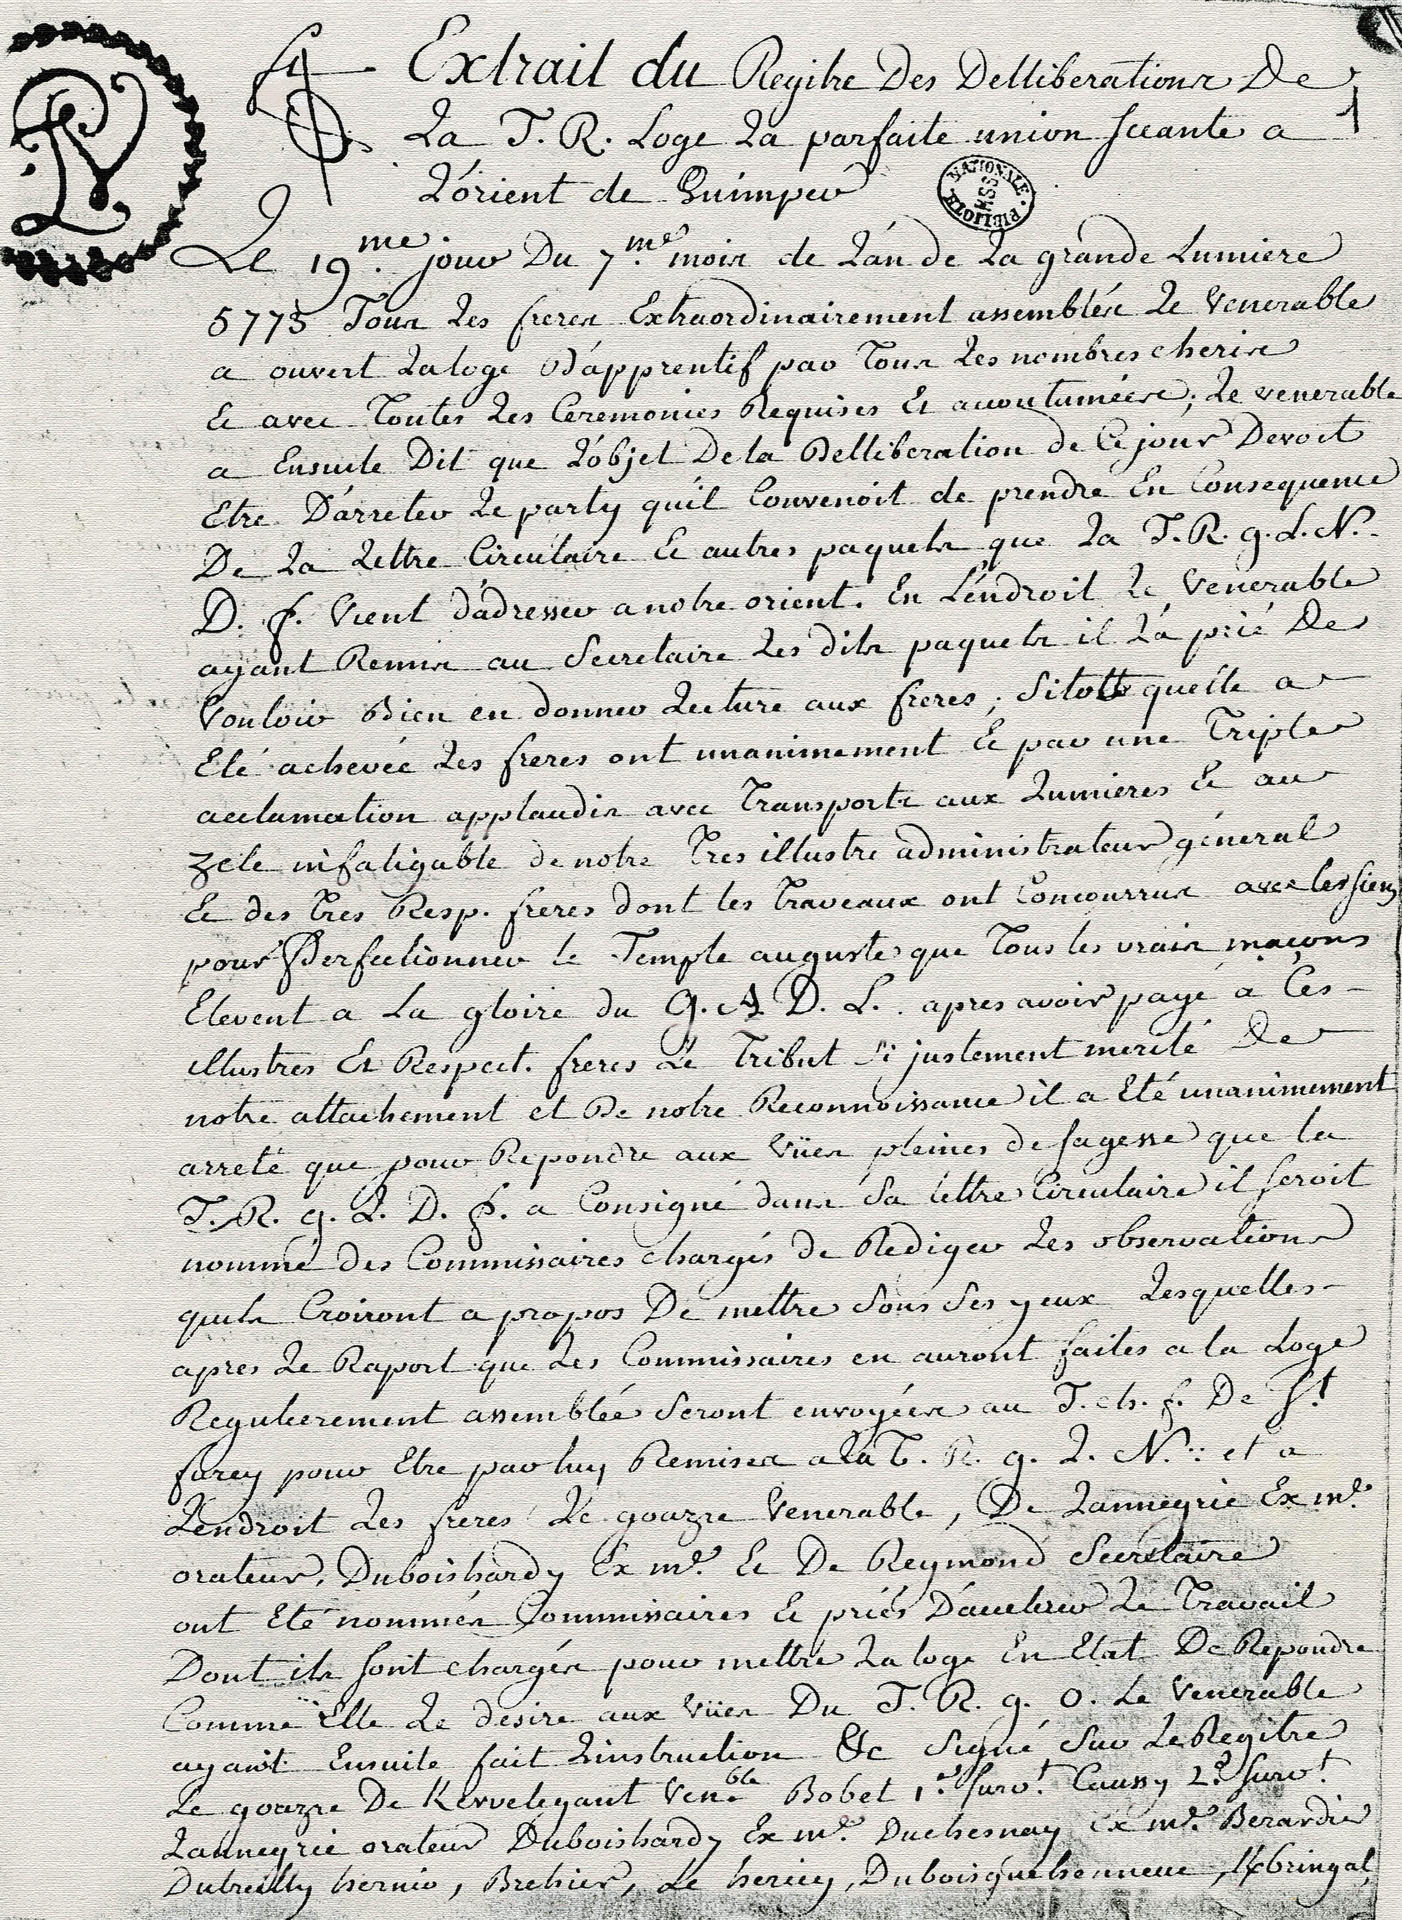 Extrait du Regitre Des Delliberations De
La T. R. Loge La parfaite union sceante a
L'orient de Quimper
BIBLIOTH NATIONALE MSS
1
Le 19.me jour Du 7.me mois de L'an de La grande Lumiere
5773 Tous Les freres Extraordinairement assemblés Le Venerable
a ouvert La loge D'apprentif par Tous Les nombres cheris
Et avec Toutes Les Ceremonies Requises Et acoutumées; Le venerable
a Ensuite Dit que L'objet De la Delliberation de Ce jour Devoit
Etre D'arreter Le party qu'il Convenoit de prendre En Consequence
De La Lettre Circulaire Et autres paquets que La T. R. g. L. N.
D. f. Vient d'adresser a notre orient. En L'endroit Le Venerable
ayant Remis au Secretaire Les dits paquets il L'a prié De
Vouloir Bien en donner Lecture aux freres; Sitott quelle a
Eté achevée Les freres ont unanimement Et par une Triple
acclamation applaudis avec Transports aux Lumieres Et au
zele infatigable de notre Tres illustre administrateur géneral
Et des Tres Resp. freres dont les Traveaux ont Concourrus avec les siens
pour Perfectionner le Temple auguste que Tous les vrais maçons
Elevent a La gloire du G. A D. L. apres avoir payé a Ces
illustres Et Respect. freres Le Tribut Si justement merité De
notre attachement et De notre Reconnoissance il a Eté unanimement
arreté que pour Repondre aux Vües pleines de sagesse que la
T. R. g. L. D. f. a Consigné dans Sa lettre Circulaire il seroit
nommé des Commissaires chargés de Rediger Les observations
quils Croiront a propos De mettre Sous Ses yeux Lesquelles
apres Le Raport que Les Commissaires en auront faites a la Loge
Regulierement assemblée Seront envoyées au T. ch. f. De St
farey pour Etre par luy Remises a La T. R. g. L. N.:: et a
L'endroit Les freres Le gouzre Venerable, De Lannegrie Ex m.e
orateur, Duboishardy Ex m.e Et De Reymond Secretaire
ont Eté nommés Commissaires Et priés D'accelerer Le Travail
Dont ils sont chargés pour mettre La loge En Etat De Repondre
Comme Elle Le desire aux Vües Du T. R. g. O. Le Venerable
ayant Ensuite fait L'instruction &c Signé Sur Le Regitre
Le gouzre De Kervelegant Ven.ble Bobet 1.er surv.t Caussy 2.d surv.t
Lannegrie orateur Duboishardy Ex m.e Duchesnay Ex m.e Berardier
Dubreilly hernio, Brehier, Le hericy, Duboisquehenneuc,